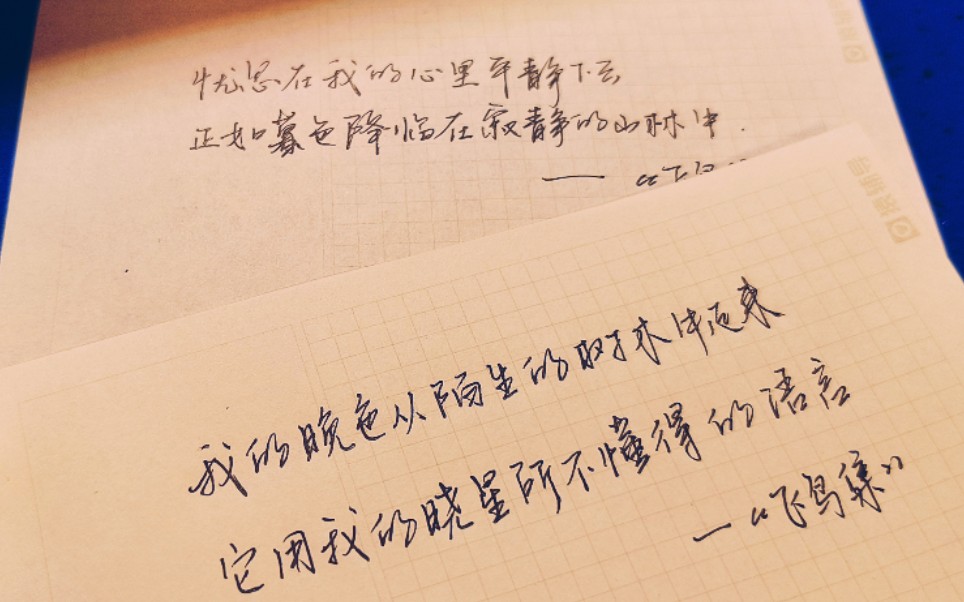 忧思在我的心里平静下去
正如暮色降临在寂静的山林中.
—— 《飞鸟
我的晚色从陌生的树林中走来
它用我的晓星所不懂得的语言
——《飞鸟集》